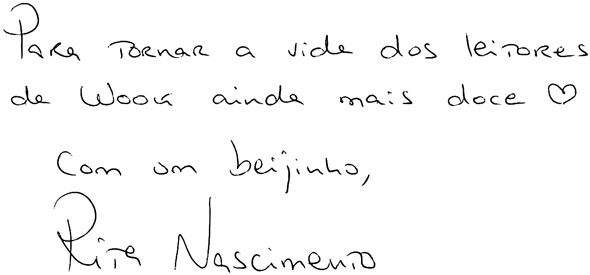 Para tornar a vida dos leitores
da Wook ainda mais doce ♡
Com um beijinho,
Rita Nascimento